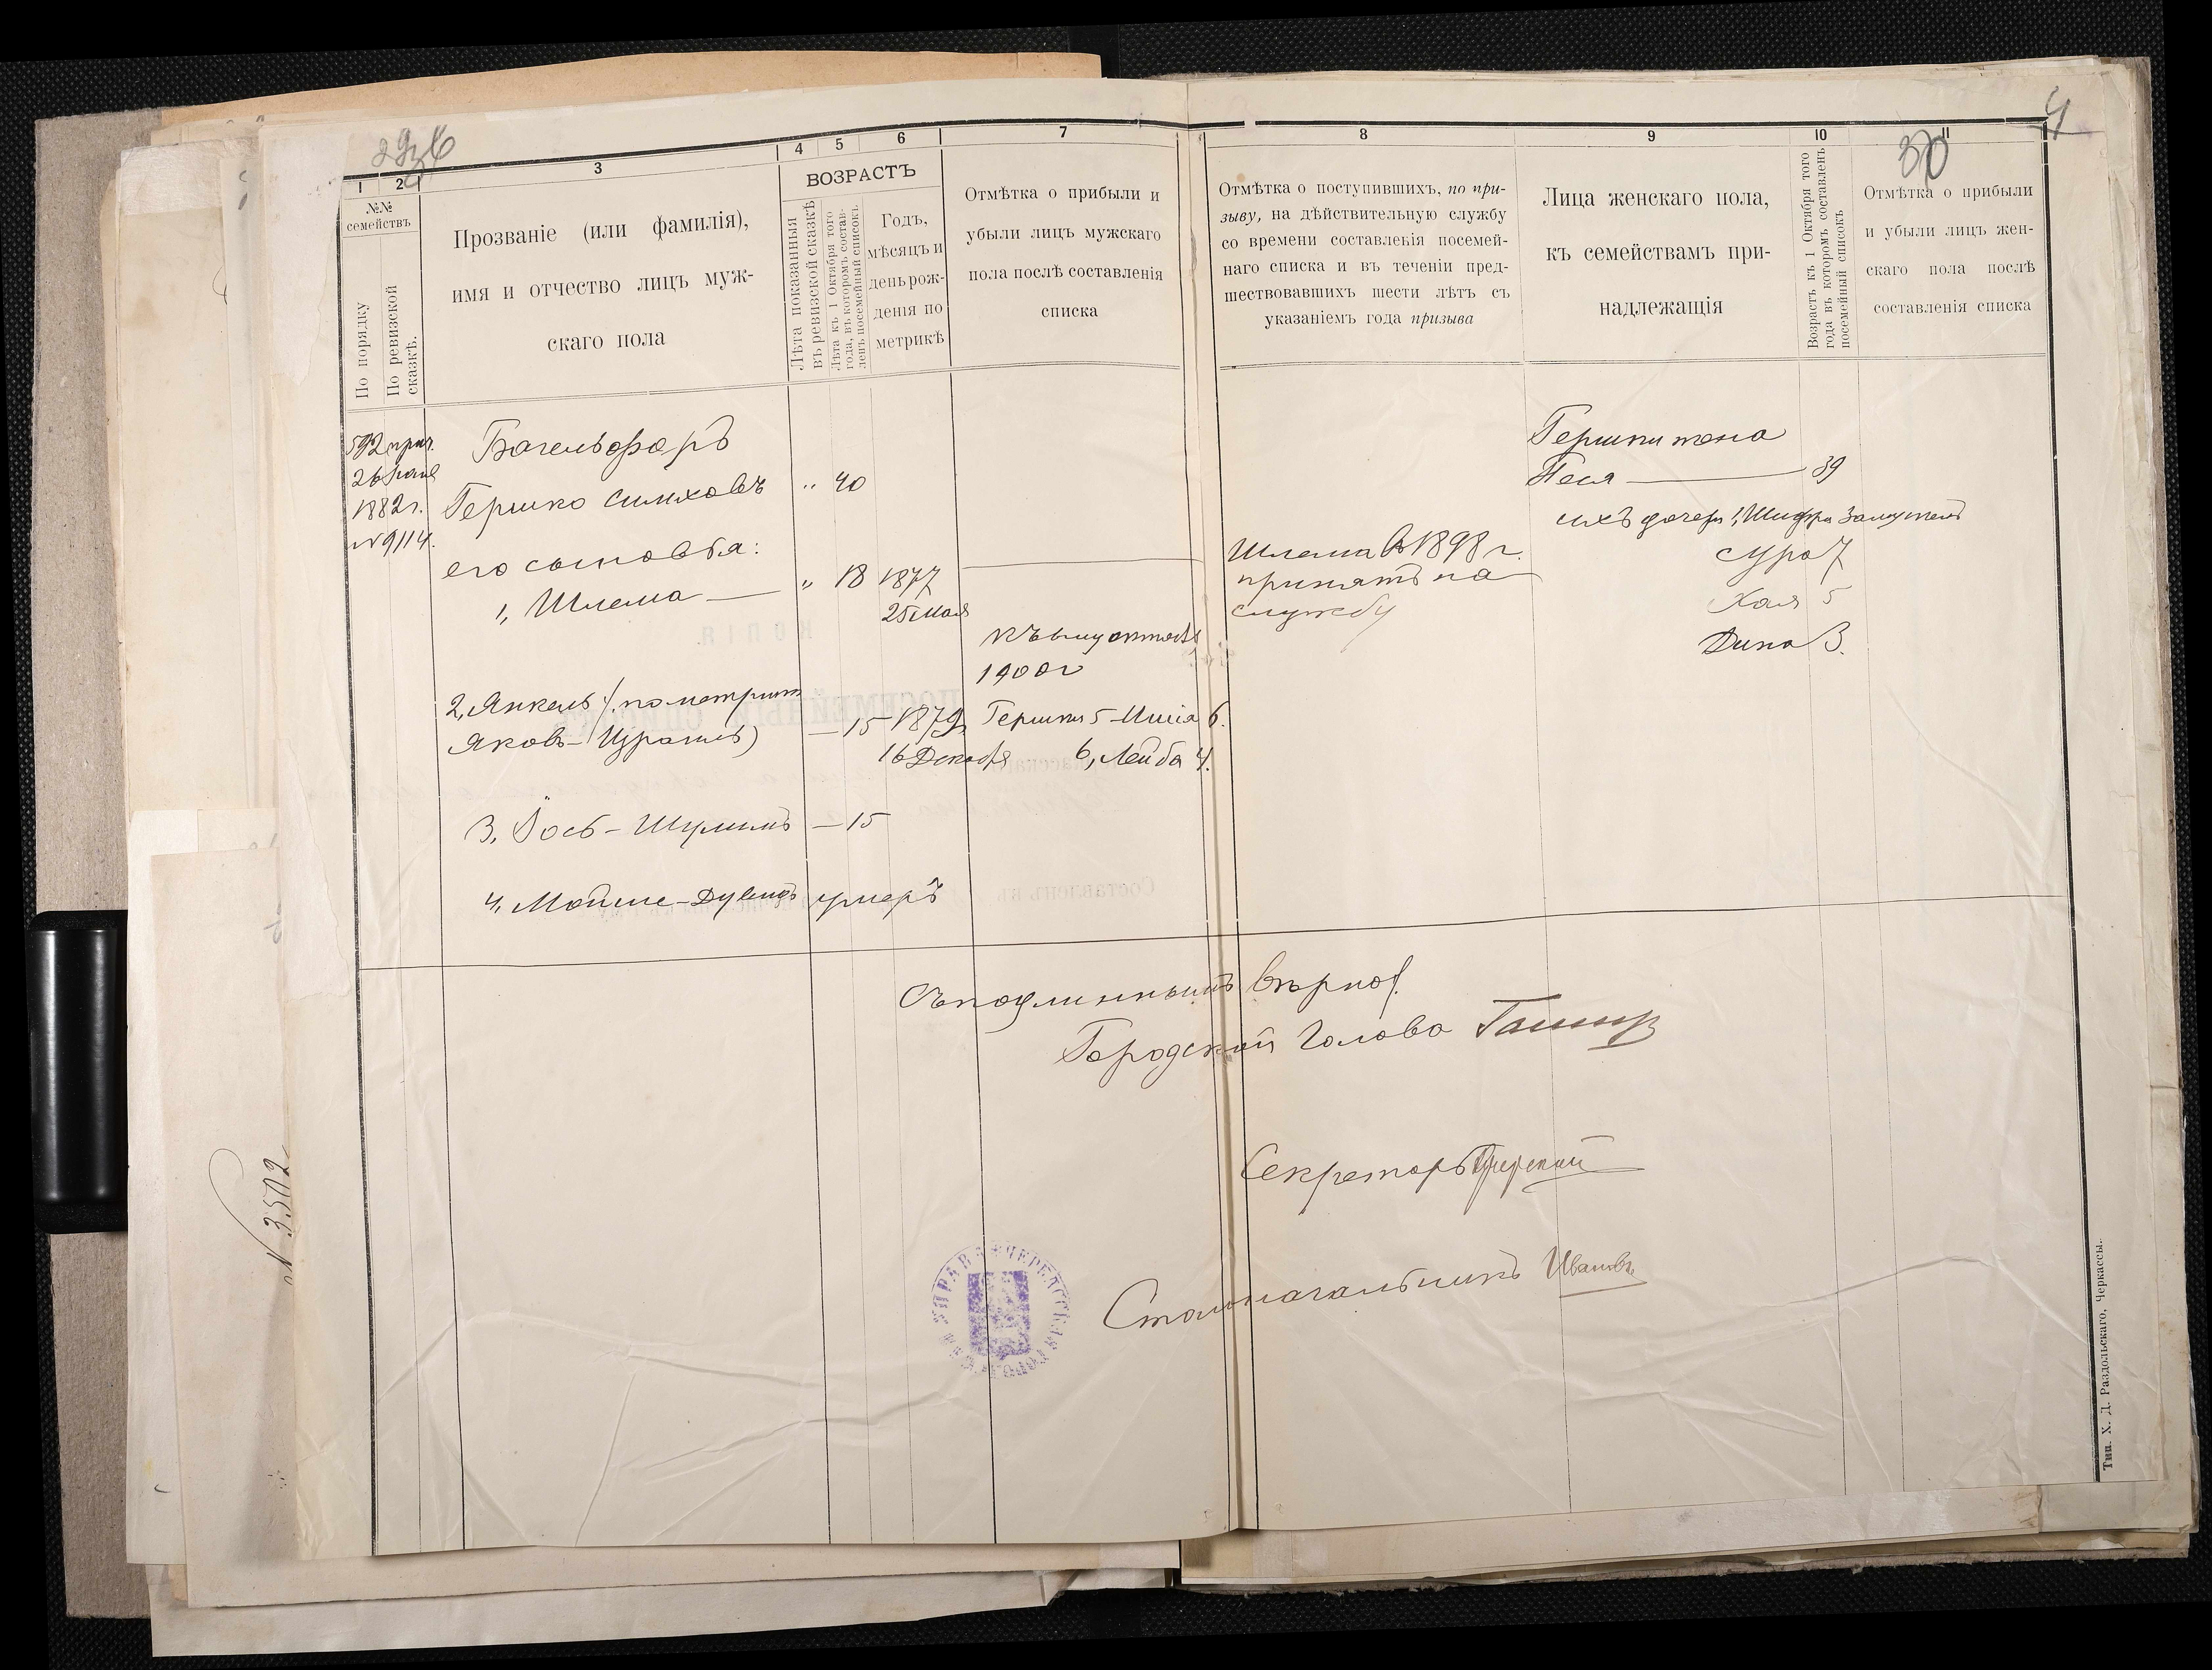 236
4
30
1
2
3
4
5
6
7
8
9
10
11
№№ семействъ
По порядку
По ревизской сказкѣ.
Прозваніе (или фамилія),
имя и отчество лицъ муж-
скаго пола
ВОЗРАСТЪ
Лѣта показанныя
въ ревизской сказкѣ
Лѣта къ 1 Октября того
года, въ которомъ состав-
ленъ посемейный списокъ.
Годъ,
мѣсяцъ и
день рож-
денія по
метрикѣ
Отмѣтка о прибыли и
убыли лицъ мужскаго
пола послѣ составленія
списка
Отмѣтка о поступившихъ, по при-
зыву, на дѣйствительную службу
со времени составленія посемей-
наго списка и въ теченіи пред-
шествовавшихъ шести лѣтъ съ
указаніемъ года призыва
Лица женскаго пола,
къ семействамъ при-
надлежащія
Возрастъ къ 1 Октября того
года въ которомъ составленъ
посемейный списокъ
Отмѣтка о прибыли
и убыли лицъ жен-
скаго пола послѣ
составленія списка
592 прич.
26
1882 г.
№ 9114.
Богельфаръ
Гершко Симховъ " 40
его сыновья:
1, Шлема — " 18 1877
25 Мая
2, Янкель (по метрик
Яковъ-Израиль) — 15 1879
16 Декабря
3, Іось-Шулимъ — 15
4, Мойше-Дувидъ умеръ
къ
1900 г
Гершки 5 6.
6, Лейба 4.
Шлема въ 1898 г.
принятъ на
службу
Гершки жена
Песя — 39
ихъ дочери 1, Шифра замужемъ
Сура 7
Хая 5
Дина 3.
Съ подлиннымъ вѣрно:
Городской Голова
Секретарь
Столоначальникъ Ивановъ
УПРАВА ЧЕРКАССКАЯ ГОРОДСКАЯ
№ 3502
Тип. Х. Д. Раздольскаго, Черкассы.